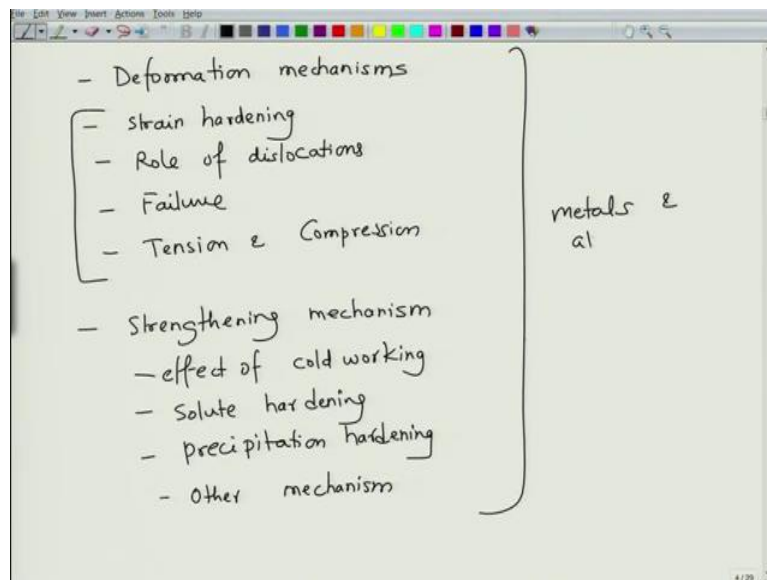 File Edit View Insert Actions Tools Help
- Deformation mechanisms
- strain hardening
- Role of dislocations
- Failure
- Tension & Compression
metals &
al
- Strengthening mechanism
- effect of cold working
- Solute hardening
- precipitation hardening
- Other mechanism
4/29